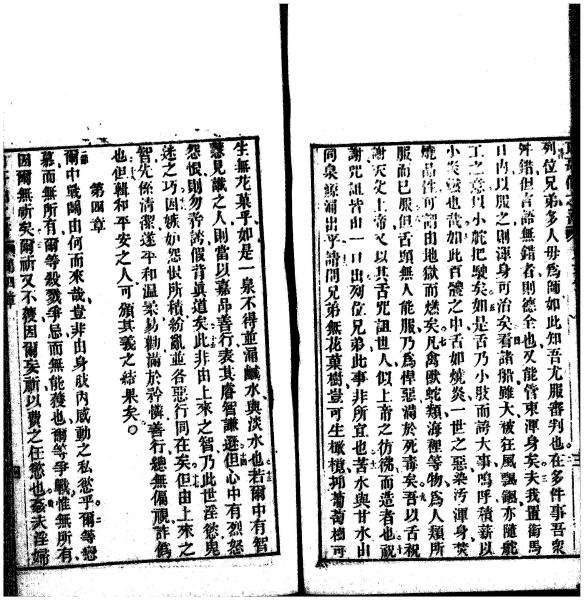 列位兄弟多人毋爲師如此知吾尤服審判也在多件事吾衆
舛錯但言語無錯者則德全也又能管束渾身矣夫我置銜馬
口內以服之則渾身可治矣看諸船雖大被狂風飄颻亦隨舵
工之意以小舵把駛矣如是舌乃小肢而誇大事嗚呼積薪以
小火燬也哉如此百體之中舌如燒炎一世之惡染汚渾身焚
燒品性可謂由地獄而燃矣凡禽獸蛇類海裡等物爲人類所
服而已服但舌頭無人能服乃爲悍惡滿於死毒矣吾以舌祝
謝天父上帝又以其舌咒詛世人似上帝之彷彿而造者也祝
謝咒詛皆由一口出列位兄弟此事非所宜也苦水與甘水由
同泉源涌出乎請問兄弟無花菓樹豈可生橄欖抑葡萄樹可
生無花菓乎如是一泉不得並漏鹹水與淡水也若爾中有智
慧見識之人則當以嘉品善行表其睿智謙遜但心中有烈怒
怨恨則勿矜誇假背眞道矣此非由上來之智乃此世淫慾鬼
迷之巧因嫉妒怨恨所積紛亂並各惡行同在矣但由上來之
智先係清潔遂平和溫柔易勸滿於矜憐善行總無偏視詐僞
也但輯和平安之人可頒其義之結果矣
第四章
爾中戰鬪由何而來哉豈非由身肢內感動之私慾乎爾等戀
慕而無所有爾等殺戮爭忌而無能獲也爾等爭戰惟無所有
因爾無祈矣爾祈又不獲因爾妄祈以費之任慾也姦夫淫婦